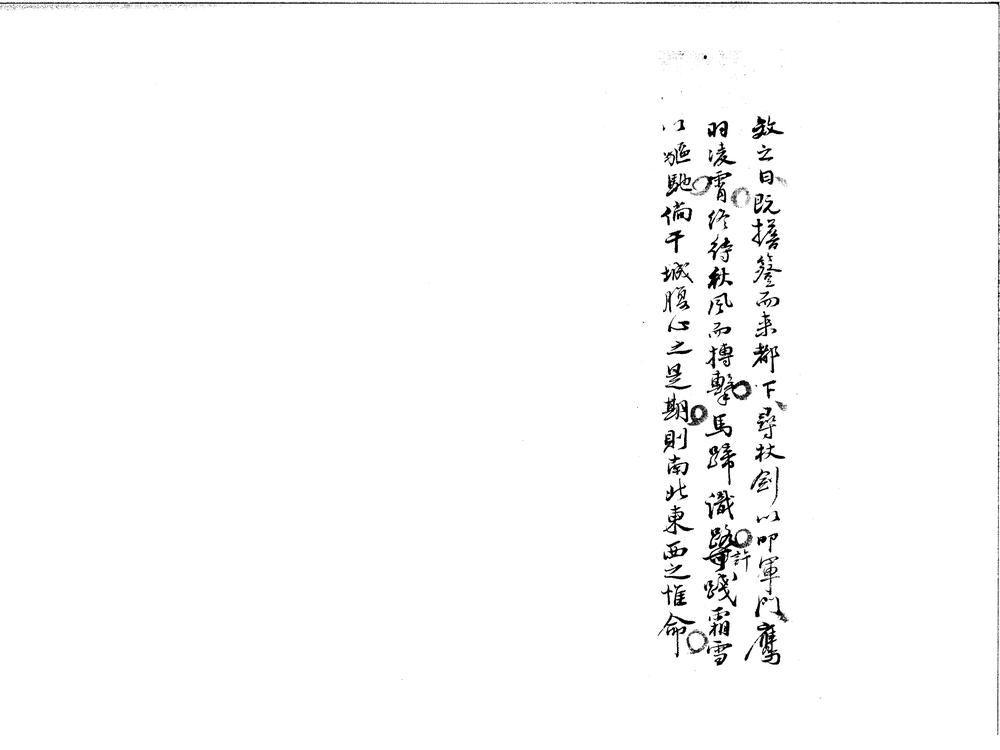 效之日既擔簦而來都下尋杖劍以叩軍門鷹
羽凌霄終待秋風而摶擊馬蹄識路許踐霜雪
以驅馳倘干城腹心之是期則南北東西之惟命